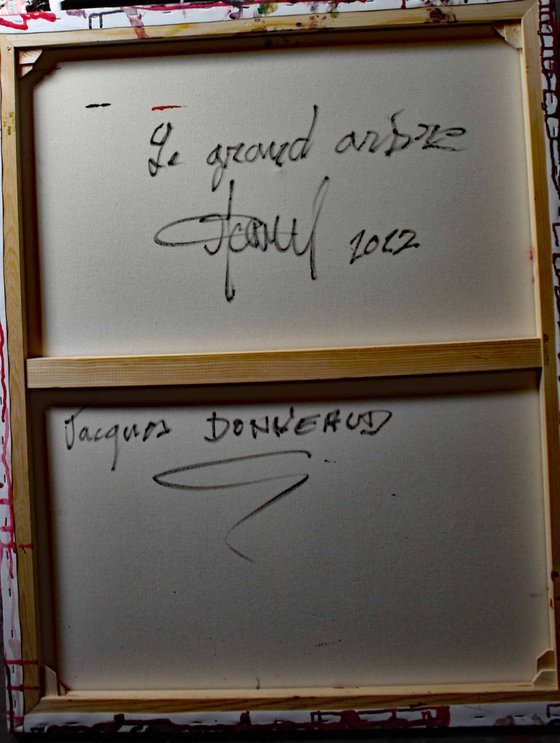 Le grand arbre
2022
Jacques DONNEAUD